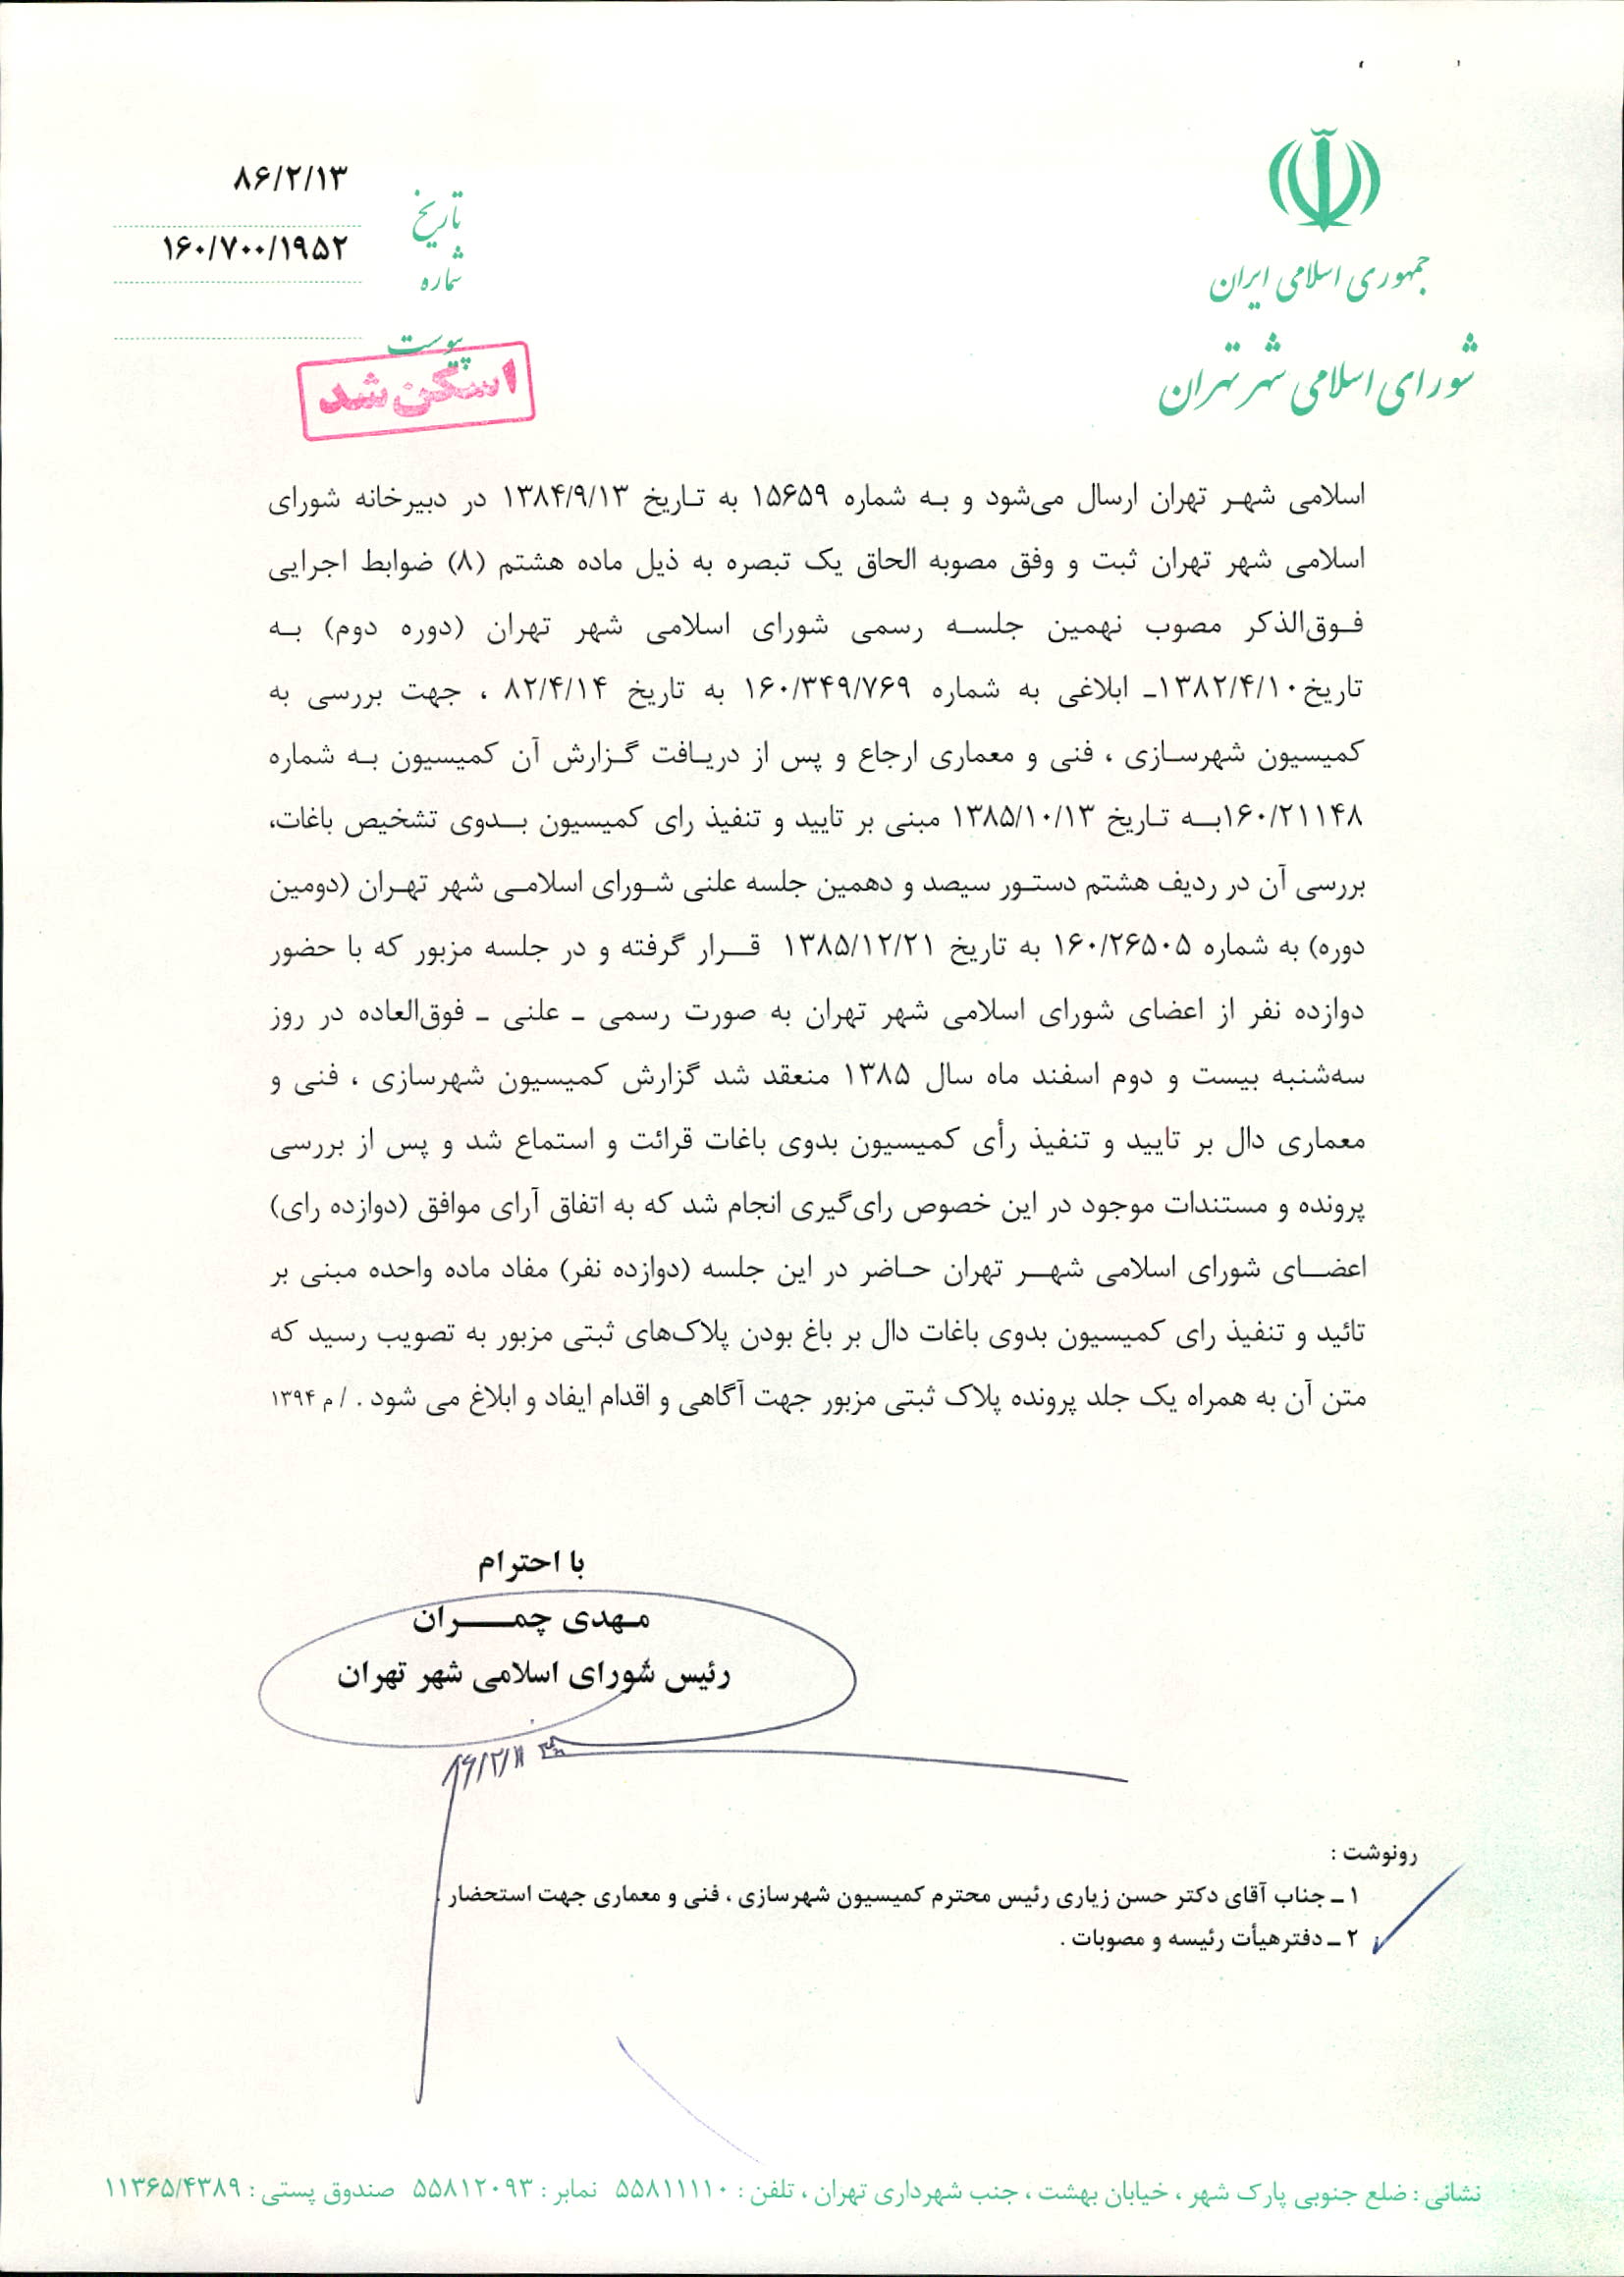 جمهوری اسلامی ایران
شورای اسلامی شهر تهران
تاریخ ۸۶/۲/۱۳
شماره ۱۶۰/۷۰۰/۱۹۵۲
پیوست
اسکن شد
اسلامی شهر تهران ارسال می‌شود و به شماره ۱۵۶۵۹ به تاریخ ۱۳۸۴/۹/۱۳ در دبیرخانه شورای
اسلامی شهر تهران ثبت و وفق مصوبه الحاق یک تبصره به ذیل ماده هشتم (۸) ضوابط اجرایی
فوق‌الذکر مصوب نهمین جلسه رسمی شورای اسلامی شهر تهران (دوره دوم) به
تاریخ۱۳۸۲/۴/۱۰ـ ابلاغی به شماره ۱۶۰/۳۴۹/۷۶۹ به تاریخ ۸۲/۴/۱۴ ، جهت بررسی به
کمیسیون شهرسازی ، فنی و معماری ارجاع و پس از دریافت گزارش آن کمیسیون به شماره
۱۶۰/۲۱۱۴۸به تاریخ ۱۳۸۵/۱۰/۱۳ مبنی بر تایید و تنفیذ رای کمیسیون بدوی تشخیص باغات،
بررسی آن در ردیف هشتم دستور سیصد و دهمین جلسه علنی شورای اسلامی شهر تهران (دومین
دوره) به شماره ۱۶۰/۲۶۵۰۵ به تاریخ ۱۳۸۵/۱۲/۲۱ قرار گرفته و در جلسه مزبور که با حضور
دوازده نفر از اعضای شورای اسلامی شهر تهران به صورت رسمی ـ علنی ـ فوق‌العاده در روز
سه‌شنبه بیست و دوم اسفند ماه سال ۱۳۸۵ منعقد شد گزارش کمیسیون شهرسازی ، فنی و
معماری دال بر تایید و تنفیذ رأی کمیسیون بدوی باغات قرائت و استماع شد و پس از بررسی
پرونده و مستندات موجود در این خصوص رای‌گیری انجام شد که به اتفاق آرای موافق (دوازده رای)
اعضای شورای اسلامی شهر تهران حاضر در این جلسه (دوازده نفر) مفاد ماده واحده مبنی بر
تائید و تنفیذ رای کمیسیون بدوی باغات دال بر باغ بودن پلاک‌های ثبتی مزبور به تصویب رسید که
متن آن به همراه یک جلد پرونده پلاک ثبتی مزبور جهت آگاهی و اقدام ایفاد و ابلاغ می شود . / م ۱۳۹۴
با احترام
مهدی چمران
رئیس شورای اسلامی شهر تهران
رونوشت :
۱ ـ جناب آقای دکتر حسن زیاری رئیس محترم کمیسیون شهرسازی ، فنی و معماری جهت استحضار .
۲ ـ دفترهیأت رئیسه و مصوبات .
نشانی : ضلع جنوبی پارک شهر ، خیابان بهشت ، جنب شهرداری تهران ، تلفن : ۵۵۸۱۱۱۱۰ نمابر : ۵۵۸۱۲۰۹۳ صندوق پستی : ۱۱۳۶۵/۴۳۸۹